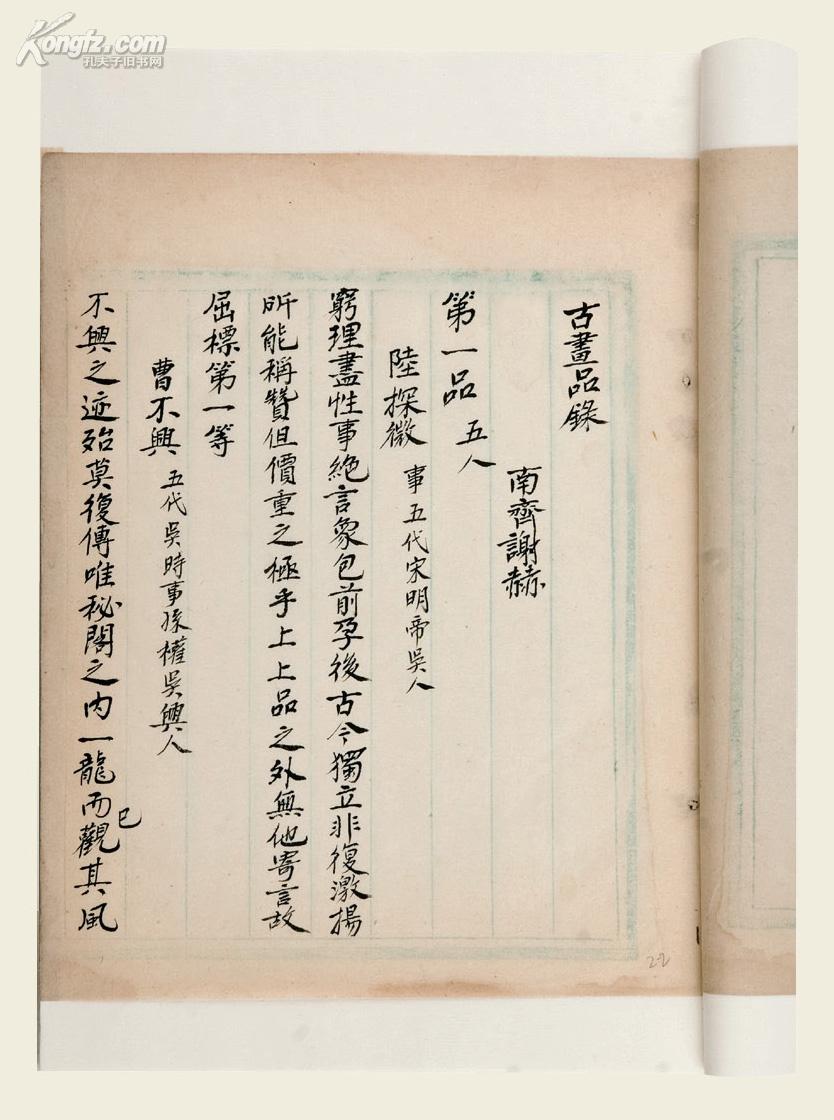 Kongfz.com
孔夫子旧书网
古畫品錄
南齊謝赫
第一品 五人
陸探微 事五代宋明帝吳人
窮理盡性事絶言象包前孕後古今獨立非復激揚
所能稱贊但價重之極乎上上品之外無他寄言故
屈標第一等
曹不興 五代吳時事孫權吳興人
不興之迹殆莫復傳唯秘閣之内一龍而已觀其風
22